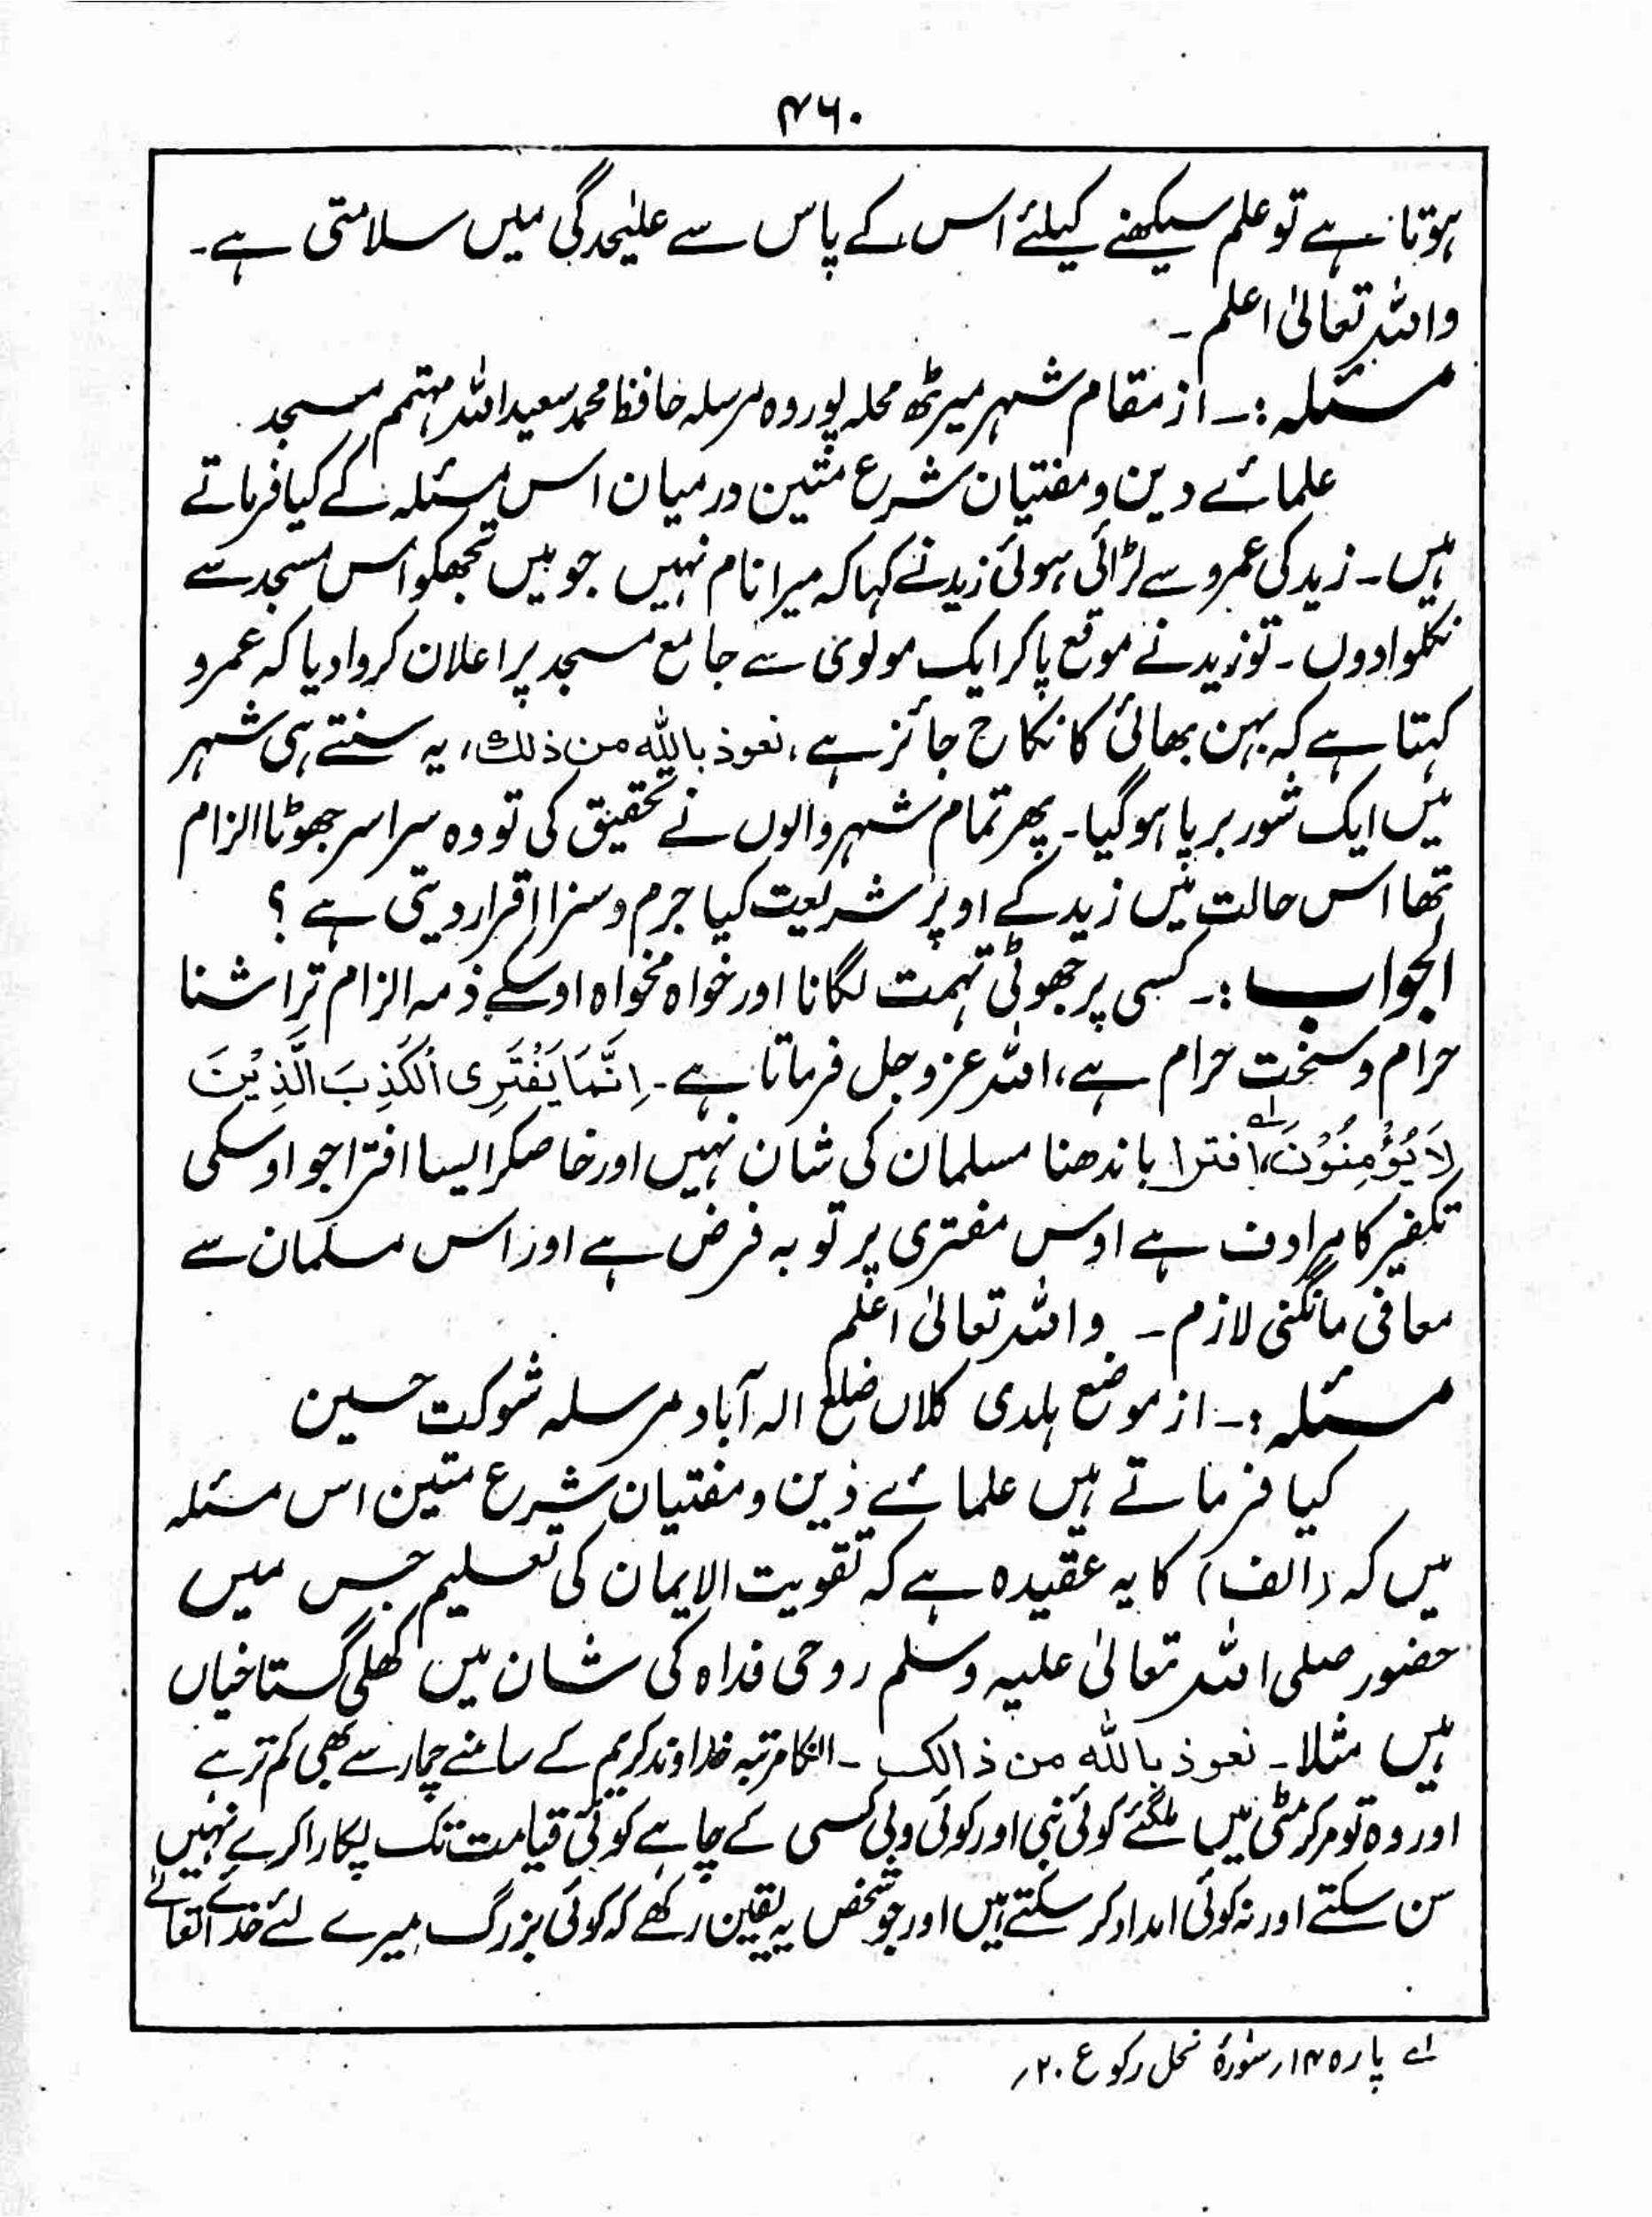 ۴۶۰
ہوتا ہے تو علم سیکھنے کیلئے اس کے پاس سے علیٰحدگی میں سلامتی ہے۔
واللہ تعالیٰ اعلم ۔
مسئلہ :۔ از مقام شہر میرٹھ محلہ پوروہ مرسلہ حافظ محمد سعید اللہ مہتمم مسجد
علمائے دین و مفتیان شرع متین درمیان اس مسئلہ کے کیا فرماتے
ہیں۔ زید کی عمرو سے لڑائی ہوئی زید نے کہا کہ میرا نام نہیں جو میں تجھکو اس مسجد سے
نکلوادوں۔ تو زید نے موقع پا کر ایک مولوی سے جامع مسجد پر اعلان کروا دیا کہ عمرو
کہتا ہے کہ بہن بھائی کا نکاح جائز ہے، نعوذ باللہ من ذلك، یہ سنتے ہی شہر
میں ایک شور برپا ہو گیا۔ پھر تمام شہر والوں نے تحقیق کی تو وہ سراسر جھوٹا الزام
تھا اس حالت میں زید کے اوپر شریعت کیا جرم و سزا اقرار دیتی ہے ؟
الجواب :۔ کسی پر جھوٹی تہمت لگانا اور خواہ مخواہ اوسکے ذمہ الزام تراشنا
حرام و سخت حرام ہے، اللہ عزوجل فرماتا ہے۔ اِنَّمَا یَفْتَرِی الْكَذِبَ الَّذِیْنَ
لَا یُؤْمِنُوْنَ،لے افترا باندھنا مسلمان کی شان نہیں اور خاصکر ایسا افترا جو اوسکی
تکفیر کا مرادف ہے اوس مفتری پر توبہ فرض ہے اور اس مسلمان سے
معافی مانگنی لازم ۔ واللہ تعالیٰ اعلم
مسئلہ :۔ از موضع ہلدی کلاں ضلع الہ آباد مرسلہ شوکت حسین
کیا فرماتے ہیں علمائے دین و مفتیان شرع متین اس مسئلہ
میں کہ (الف) کا یہ عقیدہ ہے کہ تقویت الایمان کی تعلیم جس میں
حضور صلی اللہ تعالیٰ علیہ وسلم روحی فداہ کی شان میں کھلی گستاخیاں
ہیں مثلا۔ نعوذ باللہ من ذالک ۔ انکا مرتبہ خداوند کریم کے سامنے چمار سے بھی کم تر ہے
اور وہ تو مرکر مٹی میں ملگئے کوئی نبی اور کوئی ولی کسی کے چاہے کوئی قیامت تک پکارا کرے نہیں
سن سکتے اور نہ کوئی امداد کر سکتے ہیں اور جو شخص یہ یقین رکھے کہ کوئی بزرگ میرے لئے خدائے تعالے
لے پارہ ۱۴ر سورۂ نحل رکوع ۲۰ر